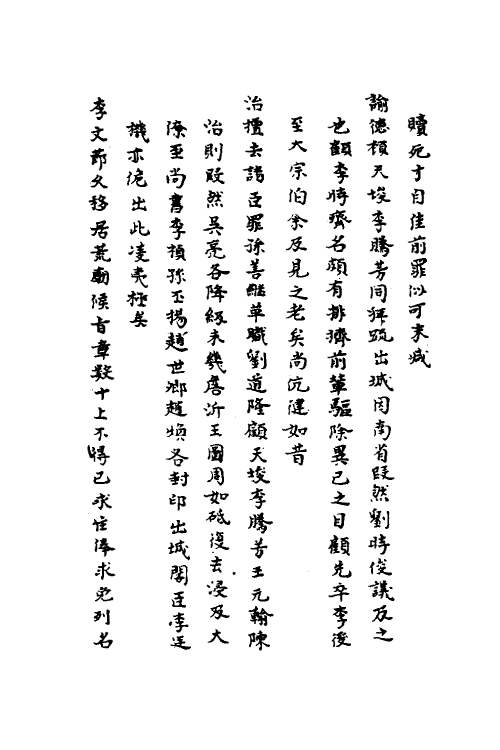 贖死寸自佳前罪似可末減
諭德顧天埈李騰芳同拜疏出城因南省段然劉時俊議及之
也顧李時齊名頗有排擠前輩驅除異己之目顧先卒李後
至大宗伯余及見之老矣尚伉健如昔
治擅去諸臣罪孫善繼革職劉道隆顧天埈李騰芳王元翰陳
治則段然吳亮各降級未幾唐沂王圖周如砥復去浸及大
僚至尚書李楨孫丕揚趙世卿趙煥各封印出城閣臣李廷
機亦傯出此凌夷極矣
李文節久移居荒廟候旨章數十上不得已求住俸求免列名